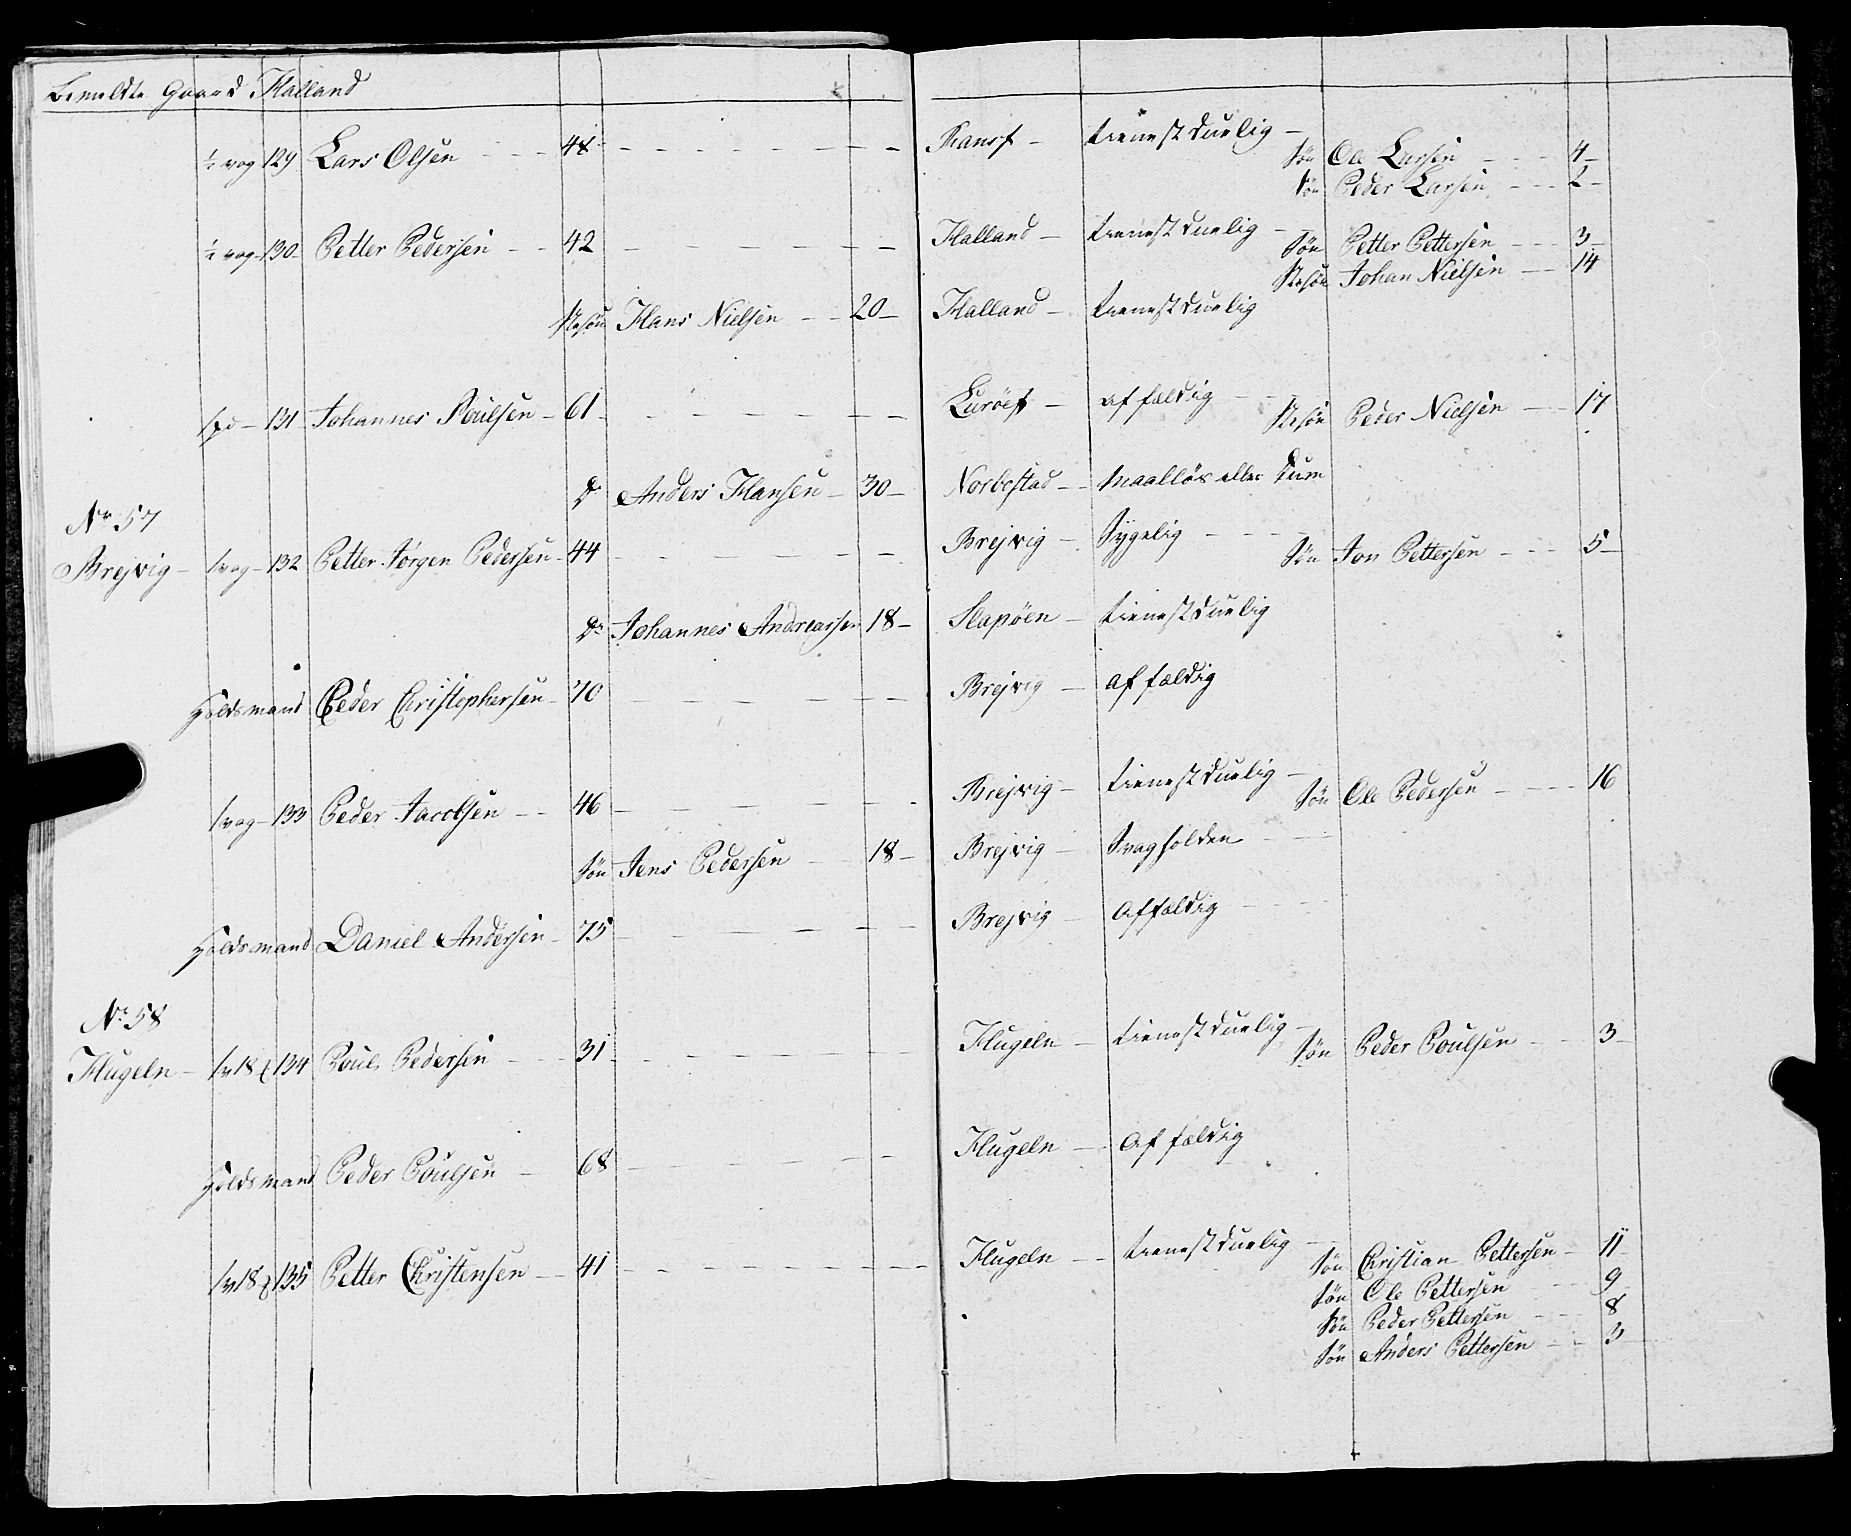 Bemeldte Gaard Halland
½ vog 129 Lars Olsen 48 Ransf tienestduelig Søn Ole Larsen 4
Søn Peder Larsen 2
½ vog 130 Petter Pedersen 42 Halland tienestduelig Søn Petter Pettersen 3
Stesøn Johan Nielsen 14
Stesøn Hans Nielsen 20 Halland tienestduelig
1 pd 131 Johannes Poulsen 61 Lurøef affældig Stesøn Peder Nielsen 17
Dr Anders Hansen 30 Norbostad maalløs eller Dum
No 57
Brejvig 1 vog 132 Petter Jørgen Pedersen 44 Brejvig Sygelig Søn Jon Pettersen 5
Dr Johannes Andreassen 18 Slapøen tienestduelig
Holdsmand Peder Christophersen 70 Brejvig affældig
1 vog 133 Peder Jacobsen 46 Brejvig tienestduelig Søn Ole Pedersen 16
Søn Jens Pedersen 18 Brejvig Svagholden
Holdsmand Daniel Andersen 75 Brejvig Affældig
No 58
Hugeln 1 v 18 134 Poul Pedersen 31 Hugeln tienestduelig Søn Peder Poulsen 3
Holdsmand Peder Poulsen 68 Hugeln Affældig
1 v 18 135 Petter Christensen 41 Hugeln tienestduelig Søn Christian Pettersen 11
Søn Ole Pettersen 9
Søn Peder Pettersen 8
Søn Anders Pettersen 3